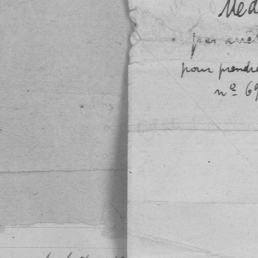 Méd
par arrê
pour prendre
nº 69